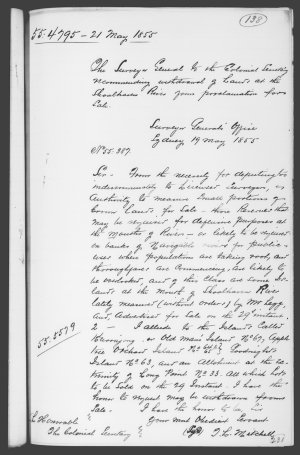 138
55.4795 - 21 May 1855
The Surveyor General to the Colonial Secretary
recommending withdrawal of Lands at the
Shoalhaven River from proclamation for
Sale.
Surveyor General's Office
Sydney 19 May 1855
No 55.287.
Sir - From the necessity for deputing to
indiscriminately to Licensed Surveyors, an
authority to measure small portions of
Crown Lands for Sale - then Reserves that
may be required for defensive purposes at
the mouths of Rivers - or likely to be required
on banks of Navigable rivers for public
uses where population are taking root, and
thoroughfares are Commencing, are likely to
be overlooked, and of this Class are Crown
lands at the Mouth of Shoalhaven River
lately measured (without orders) by Mr
and Advertised for Sale on the 29th instant.
55.5579
2 - I allude to the Islands Called
or Old Man Island No 67, Apple
Tree Orchard Island, No Goodnight
Island No 63, and an Allotment at the
of Long Point No 33. All which lots
to be Sold on the 29 Instant. I have the
honor to request may be withdrawn from
Sale. I have the honor to be, Sir
Your most Obedient Servant
T. L. Mitchell
The Honorable
The Colonial Secretary